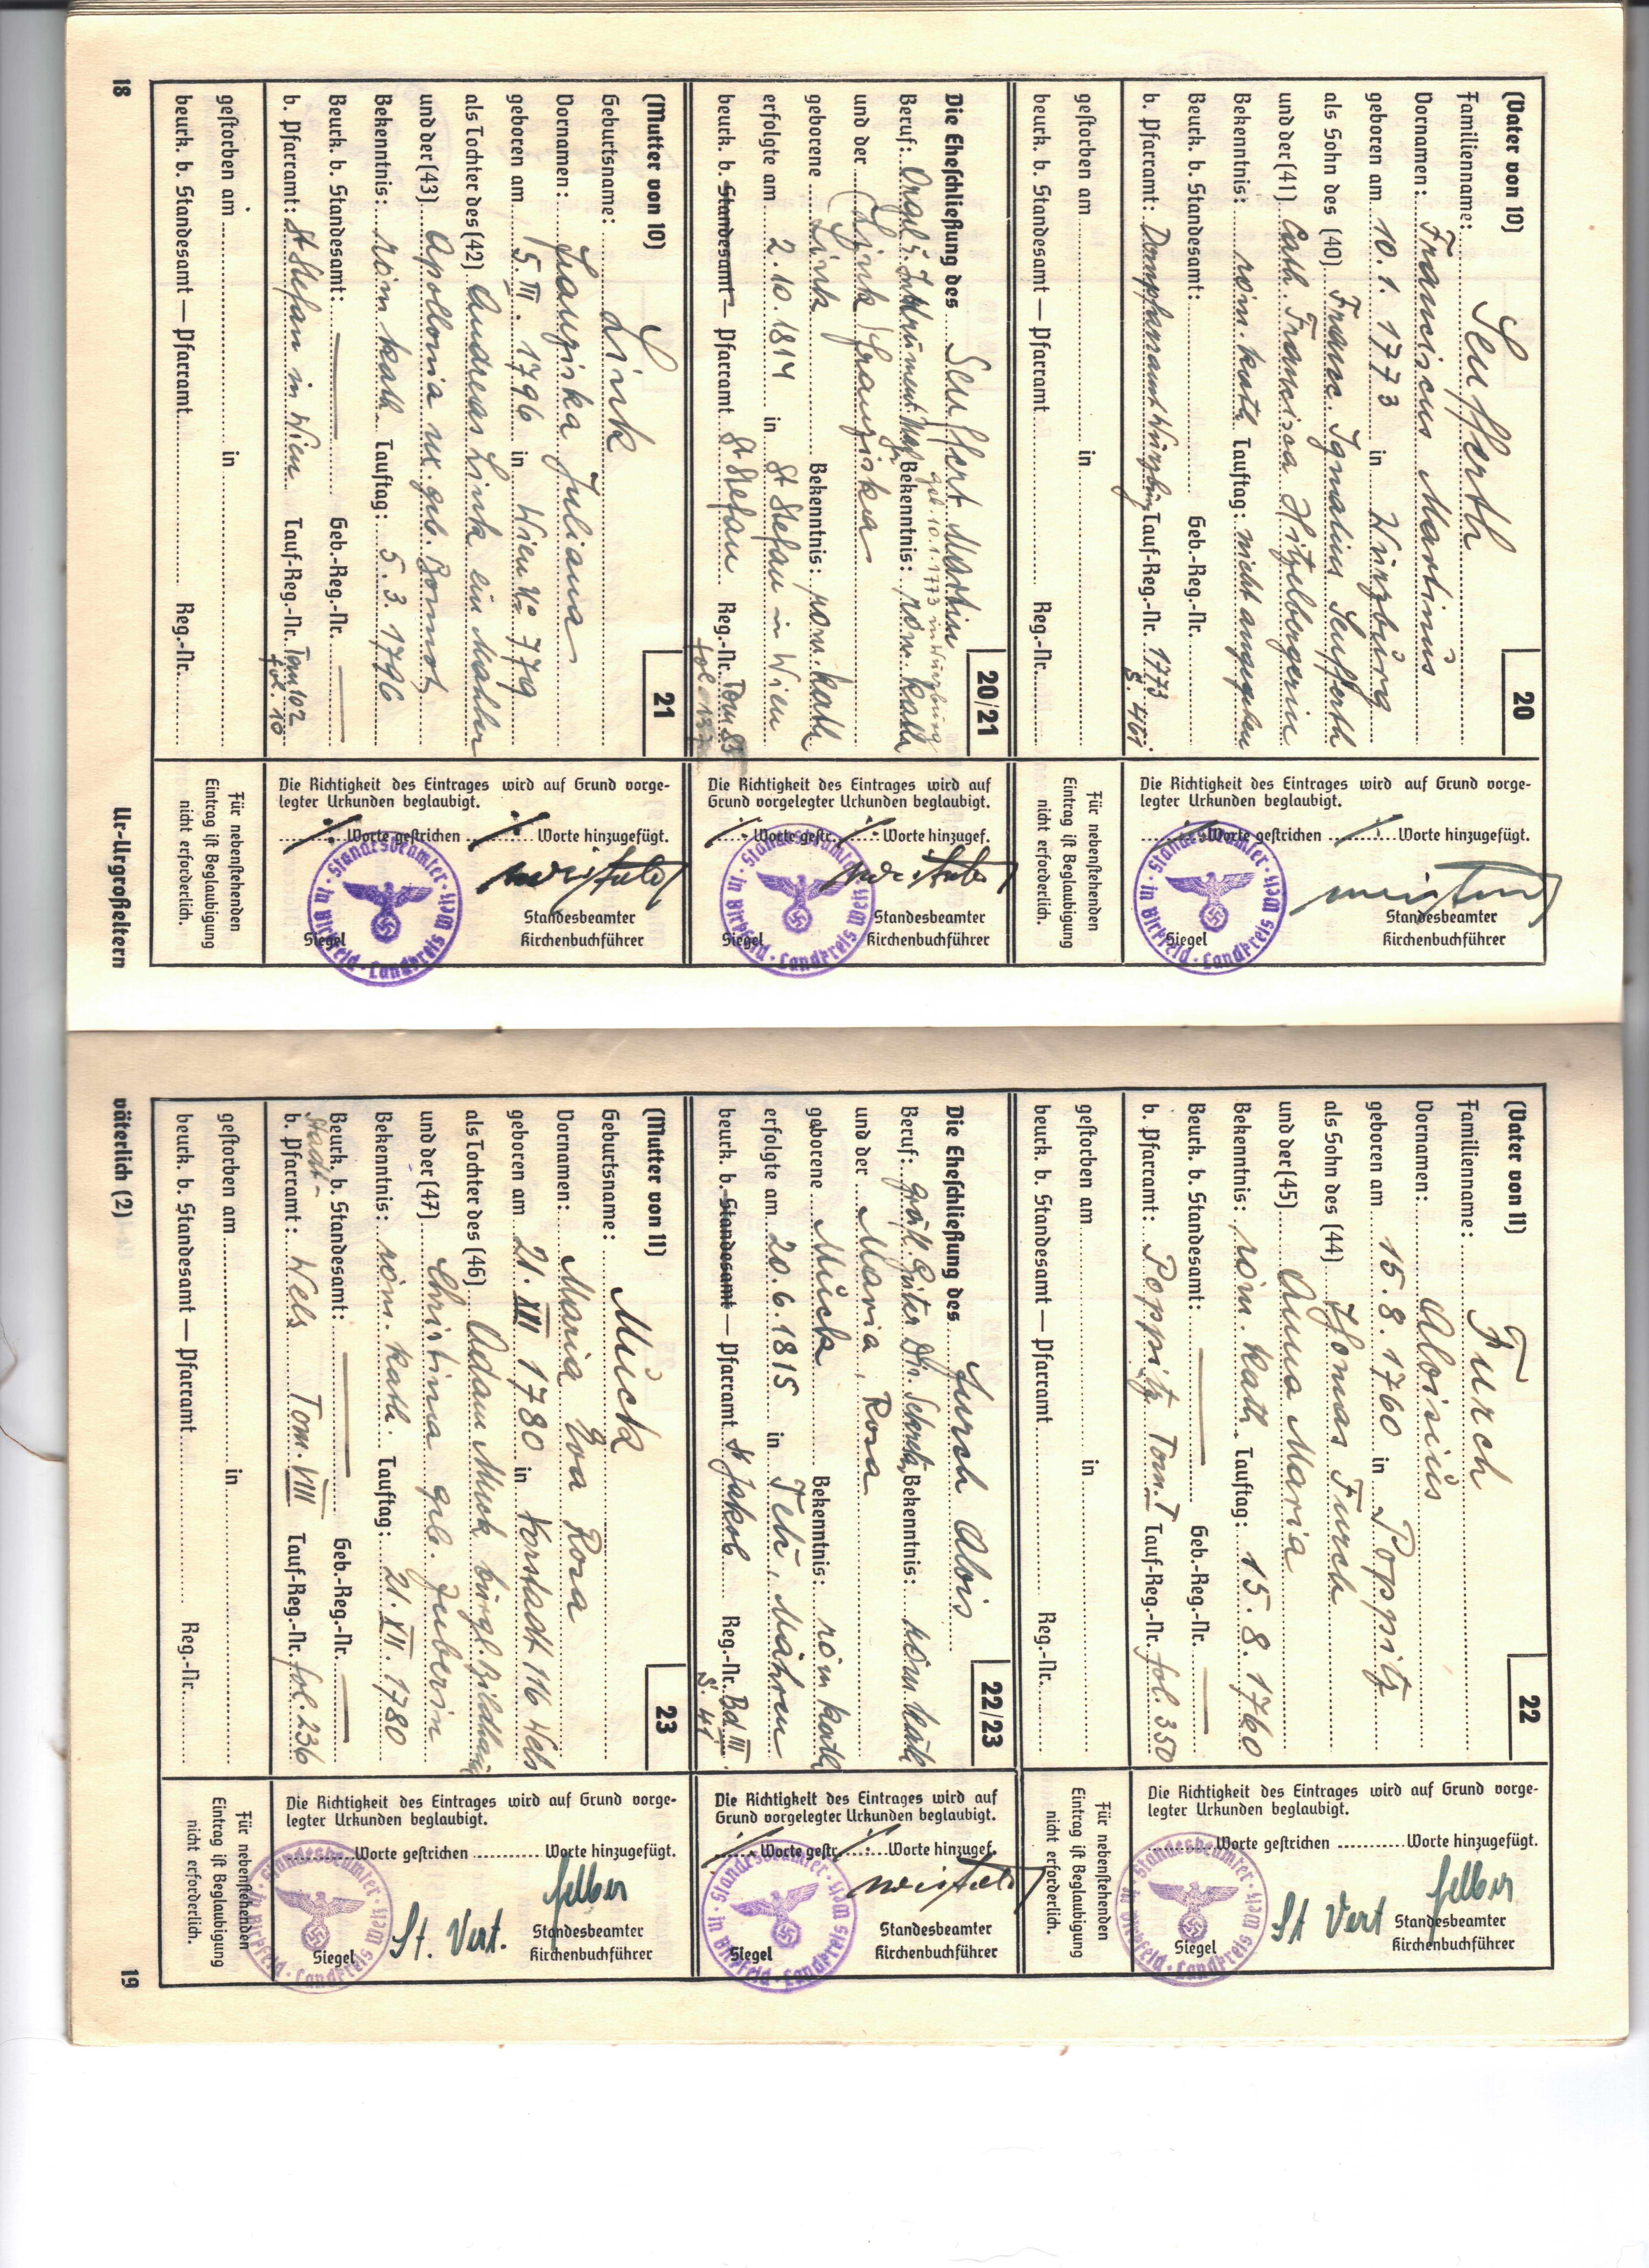 (Vater von 10) 20
Familienname: Seufferth
Vornamen: Franciscus Martinus
geboren am 10.1.1773 in Würzburg
als Sohn des (40) Franc. Ignatius Seufferth
und der (41) Cath. Francisca Hitzelbergerin
Bekenntnis: röm. kath Tauftag: nicht angegeben
Beurk. b. Standesamt: Geb.-Reg.-Nr.
b. Pfarramt: Dompfarramt Würzburg Tauf-Reg.-Nr. 1773
S. 461
gestorben am in
beurk. b. Standesamt — Pfarramt Reg.-Nr.
Die Richtigkeit des Eintrages wird auf Grund vorge-
legter Urkunden beglaubigt.
Worte gestrichen Worte hinzugefügt.
Standesbeamter
Siegel Kirchenbuchführer
Standesbeamter in Birkfeld · Landkreis Weiz
Für nebenstehenden
Eintrag ist Beglaubigung
nicht erforderlich.
20/21
Die Eheschließung des Seuffert Martin
geb. 10.1.1773 in Würzburg
Beruf: Bekenntnis: röm. kath
und der Link Franziska
geborene Link Bekenntnis: röm. kath
erfolgte am 2.10.1814 in St Stefan in Wien
beurk. b. Standesamt — Pfarramt St Stefan Reg.-Nr. Tom 83
fol.
Die Richtigkeit des Eintrages wird auf
Grund vorgelegter Urkunden beglaubigt.
Worte gestr. Worte hinzugef.
Standesbeamter
Siegel Kirchenbuchführer
Standesbeamter in Birkfeld · Landkreis Weiz
(Mutter von 10) 21
Geburtsname: Link
Vornamen: Franziska Juliana
geboren am 5.III.1796 in Wien No 779
als Tochter des (42) Andreas Link ein Mahler
und der (43) Apollonia ux. geb.
Bekenntnis: röm kath Tauftag: 5.3.1796
Beurk. b. Standesamt: Geb.-Reg.-Nr.
b. Pfarramt: St Stefan in Wien Tauf-Reg.-Nr. Tom 102
fol. 10
gestorben am in
beurk. b. Standesamt — Pfarramt Reg.-Nr.
Die Richtigkeit des Eintrages wird auf Grund vorge-
legter Urkunden beglaubigt.
Worte gestrichen Worte hinzugefügt.
Standesbeamter
Siegel Kirchenbuchführer
Standesbeamter in Birkfeld · Landkreis Weiz
Für nebenstehenden
Eintrag ist Beglaubigung
nicht erforderlich.
18 Ur-Urgroßeltern
(Vater von 11) 22
Familienname: Furch
Vornamen: Aloisius
geboren am 15.8.1760 in Poppitz
als Sohn des (44) Thomas Furch
und der (45) Anna Maria
Bekenntnis: röm. kath. Tauftag: 15.8.1760
Beurk. b. Standesamt: Geb.-Reg.-Nr.
b. Pfarramt: Poppitz Tom. I Tauf-Reg.-Nr. fol. 350
gestorben am in
beurk. b. Standesamt — Pfarramt Reg.-Nr.
Die Richtigkeit des Eintrages wird auf Grund vorge-
legter Urkunden beglaubigt.
Worte gestrichen Worte hinzugefügt.
Felber
St Vert Standesbeamter
Siegel Kirchenbuchführer
Standesbeamter in Birkfeld · Landkreis Weiz
Für nebenstehenden
Eintrag ist Beglaubigung
nicht erforderlich.
22/23
Die Eheschließung des Furch Alois
Beruf: gräfl. Güter Dir. Bekenntnis: röm kath
und der Maria, Rosa
geborene Mück Bekenntnis: röm kath
erfolgte am 20.6.1815 in Telč, Mähren
beurk. b. Standesamt — Pfarramt St Jakob Reg.-Nr. Bd III
S. 41
Die Richtigkeit des Eintrages wird auf
Grund vorgelegter Urkunden beglaubigt.
Worte gestr. Worte hinzugef.
Standesbeamter
Siegel Kirchenbuchführer
Standesbeamter in Birkfeld · Landkreis Weiz
(Mutter von 11) 23
Geburtsname: Mück
Vornamen: Maria Eva Rosa
geboren am 21.XII 1780 in Vorstadt 116 Wels
als Tochter des (46) Adam Mück bürgl. Bildhauer
und der (47) Christina geb. Huberin
Bekenntnis: röm. kath. Tauftag: 21.XII.1780
Beurk. b. Standesamt: Geb.-Reg.-Nr.
Stadt-
b. Pfarramt: Wels Tom. VIII Tauf-Reg.-Nr. fol. 236
gestorben am in
beurk. b. Standesamt — Pfarramt Reg.-Nr.
Die Richtigkeit des Eintrages wird auf Grund vorge-
legter Urkunden beglaubigt.
Worte gestrichen Worte hinzugefügt.
Felber
St. Vert. Standesbeamter
Siegel Kirchenbuchführer
Standesbeamter in Birkfeld · Landkreis Weiz
Für nebenstehenden
Eintrag ist Beglaubigung
nicht erforderlich.
väterlich (2) 19